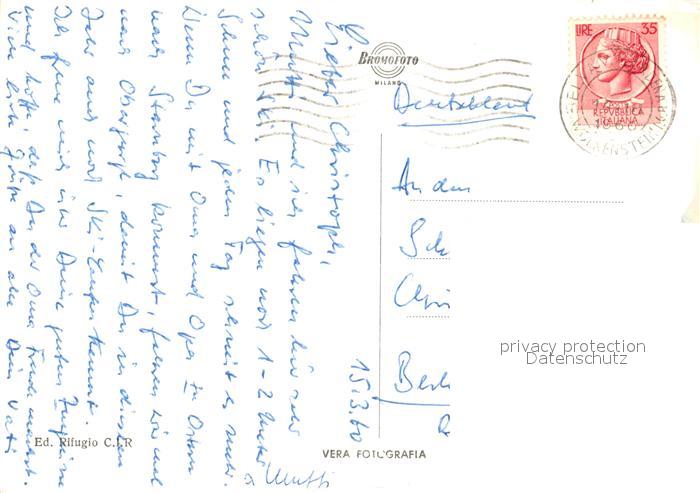 Lieber Christoph,
Mutti und ich fahren hier sehr
schön Ski. Es liegen noch 1-2 Meter
Schnee und jeden Tag schneit es mehr.
Wenn Du mit Oma und Opa zu Ostern
nach Starnberg kommst, fahren wir mal
nach Obergurgl, damit Du in diesem
Jahr auch noch Ski-laufen kannst.
Ich freue mich über Deine guten Zeugnisse
und hoffe, daß Du der Oma Freude machst.
Viele liebe Grüße an alle Dein Vati
Mutti
15.3.60
BROMOFOTO
MILANO
Deutschland
An den
Sch
Chri
Berli
LIRE 35
REPVBBLICA
ITALIANA
WOLKENSTEIN
privacy protection
Datenschutz
Ed. Rifugio C.I.R
VERA FOTOGRAFIA